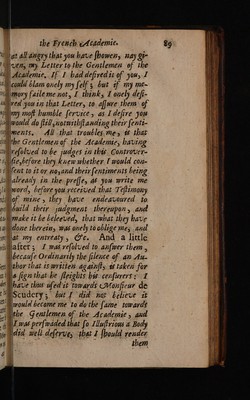 the French Academie. 89
at all angry that you have showen, nay gi-
ven, my Letter to the Gentlemen of the
Academie. If I had desired it of you, I
could blam onely my self; but if my me-
mory faile me not, I think, I onely desi-
red you in that Letter, to assure them of
my most humble service, as I desire you
would do still, notwithstanding their senti-
ments. All that troubles me, is that
the Gentlemen of the Academie, having
resolved to be judges in this Controver-
sie, before they knew whether I would con-
sent to it or no, and their sentiments being
already in the presse, as you write me
word, before you received that Testimony
of mine, they have endeavoured to
build their judgment thereupon, and
make it be beleeved, that what they have
done therein, was onely to oblige me, and
at my entreaty, &c. And a little
after; I was resolved to answer them,
because Ordinarily the silence of an Au-
thor that is written against, is taken for
a sign that he sleights his censurers: I
have thus used it towards Monsieur de
Scudery; but I did not believe it
would become me to do the same towards
the Gentlemen of the Academie, and
I was perswaded that so Illustrious a Body
did well deserve, that I should render
them